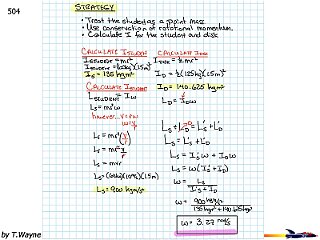 504
STRATEGY
• Treat the student as a point mass.
• Use conservation of rotational momentum.
• Calculate I for the student and disc
CALCULATE I STUDENT
I STUDENT = mr²
I STUDENT = (60kg)(1.5m)²
I S = 135 kg m²
CALCULATE L STUDENT
L STUDENT = Iω
L S = mr²ω
however... v = rω
ω = v/r
L S = mr²(v/r)
L S = mr² v/r
L S = mvr
L S = (60kg)(10m/s)(1.5m)
L S = 900 kg m²/s
CALCULATE I DISK
I DISK = ½ mr²
I D = ½(125kg)(1.5m)²
I D = 140.625 kg m²
L D = I D ω
L S + L D = L'S + L'D
L S = L'S + L'D
L S = I'S ω + I D ω
L S = ω(I'S + I D)
ω = L S / I'S + I D
ω = 900 kg m²/s / 135 kg m² + 140.625 kg m²
ω = 3.27 rad/s
by T.Wayne